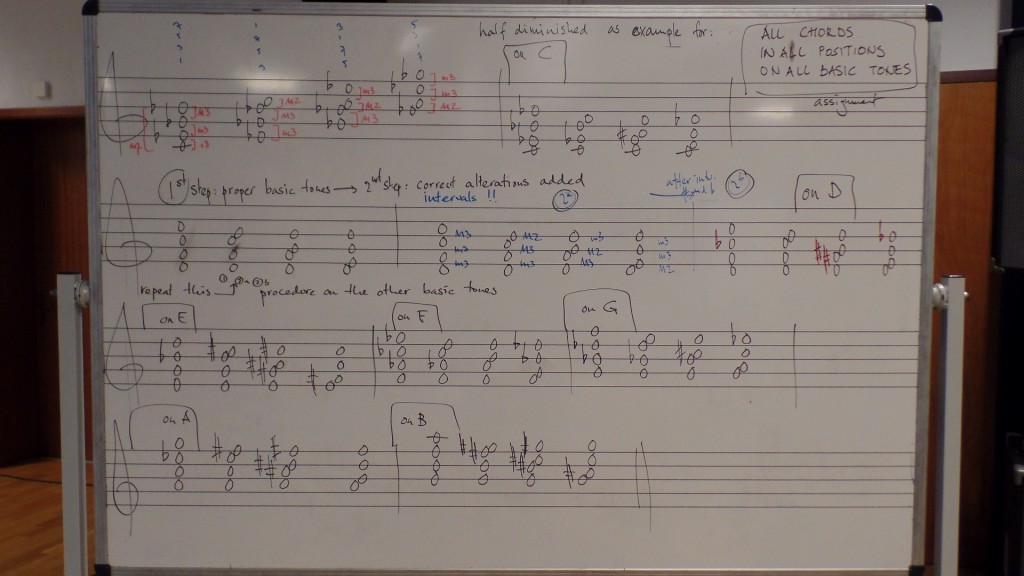 half diminished as example for:
ALL CHORDS
IN ALL POSITIONS
ON ALL BASIC TONES
assignment
on C
m3
m3
M2
m3
M3
M2
M2
M3
M3
m3
m3
1st step: proper basic tones → 2nd step: correct alterations added
intervals !!
on D
M3
M2
m3
m3
M3
M2
m3
m3
m3
M3
M2
repeat this procedure on the other basic tones
on E
on F
on G
on A
on B